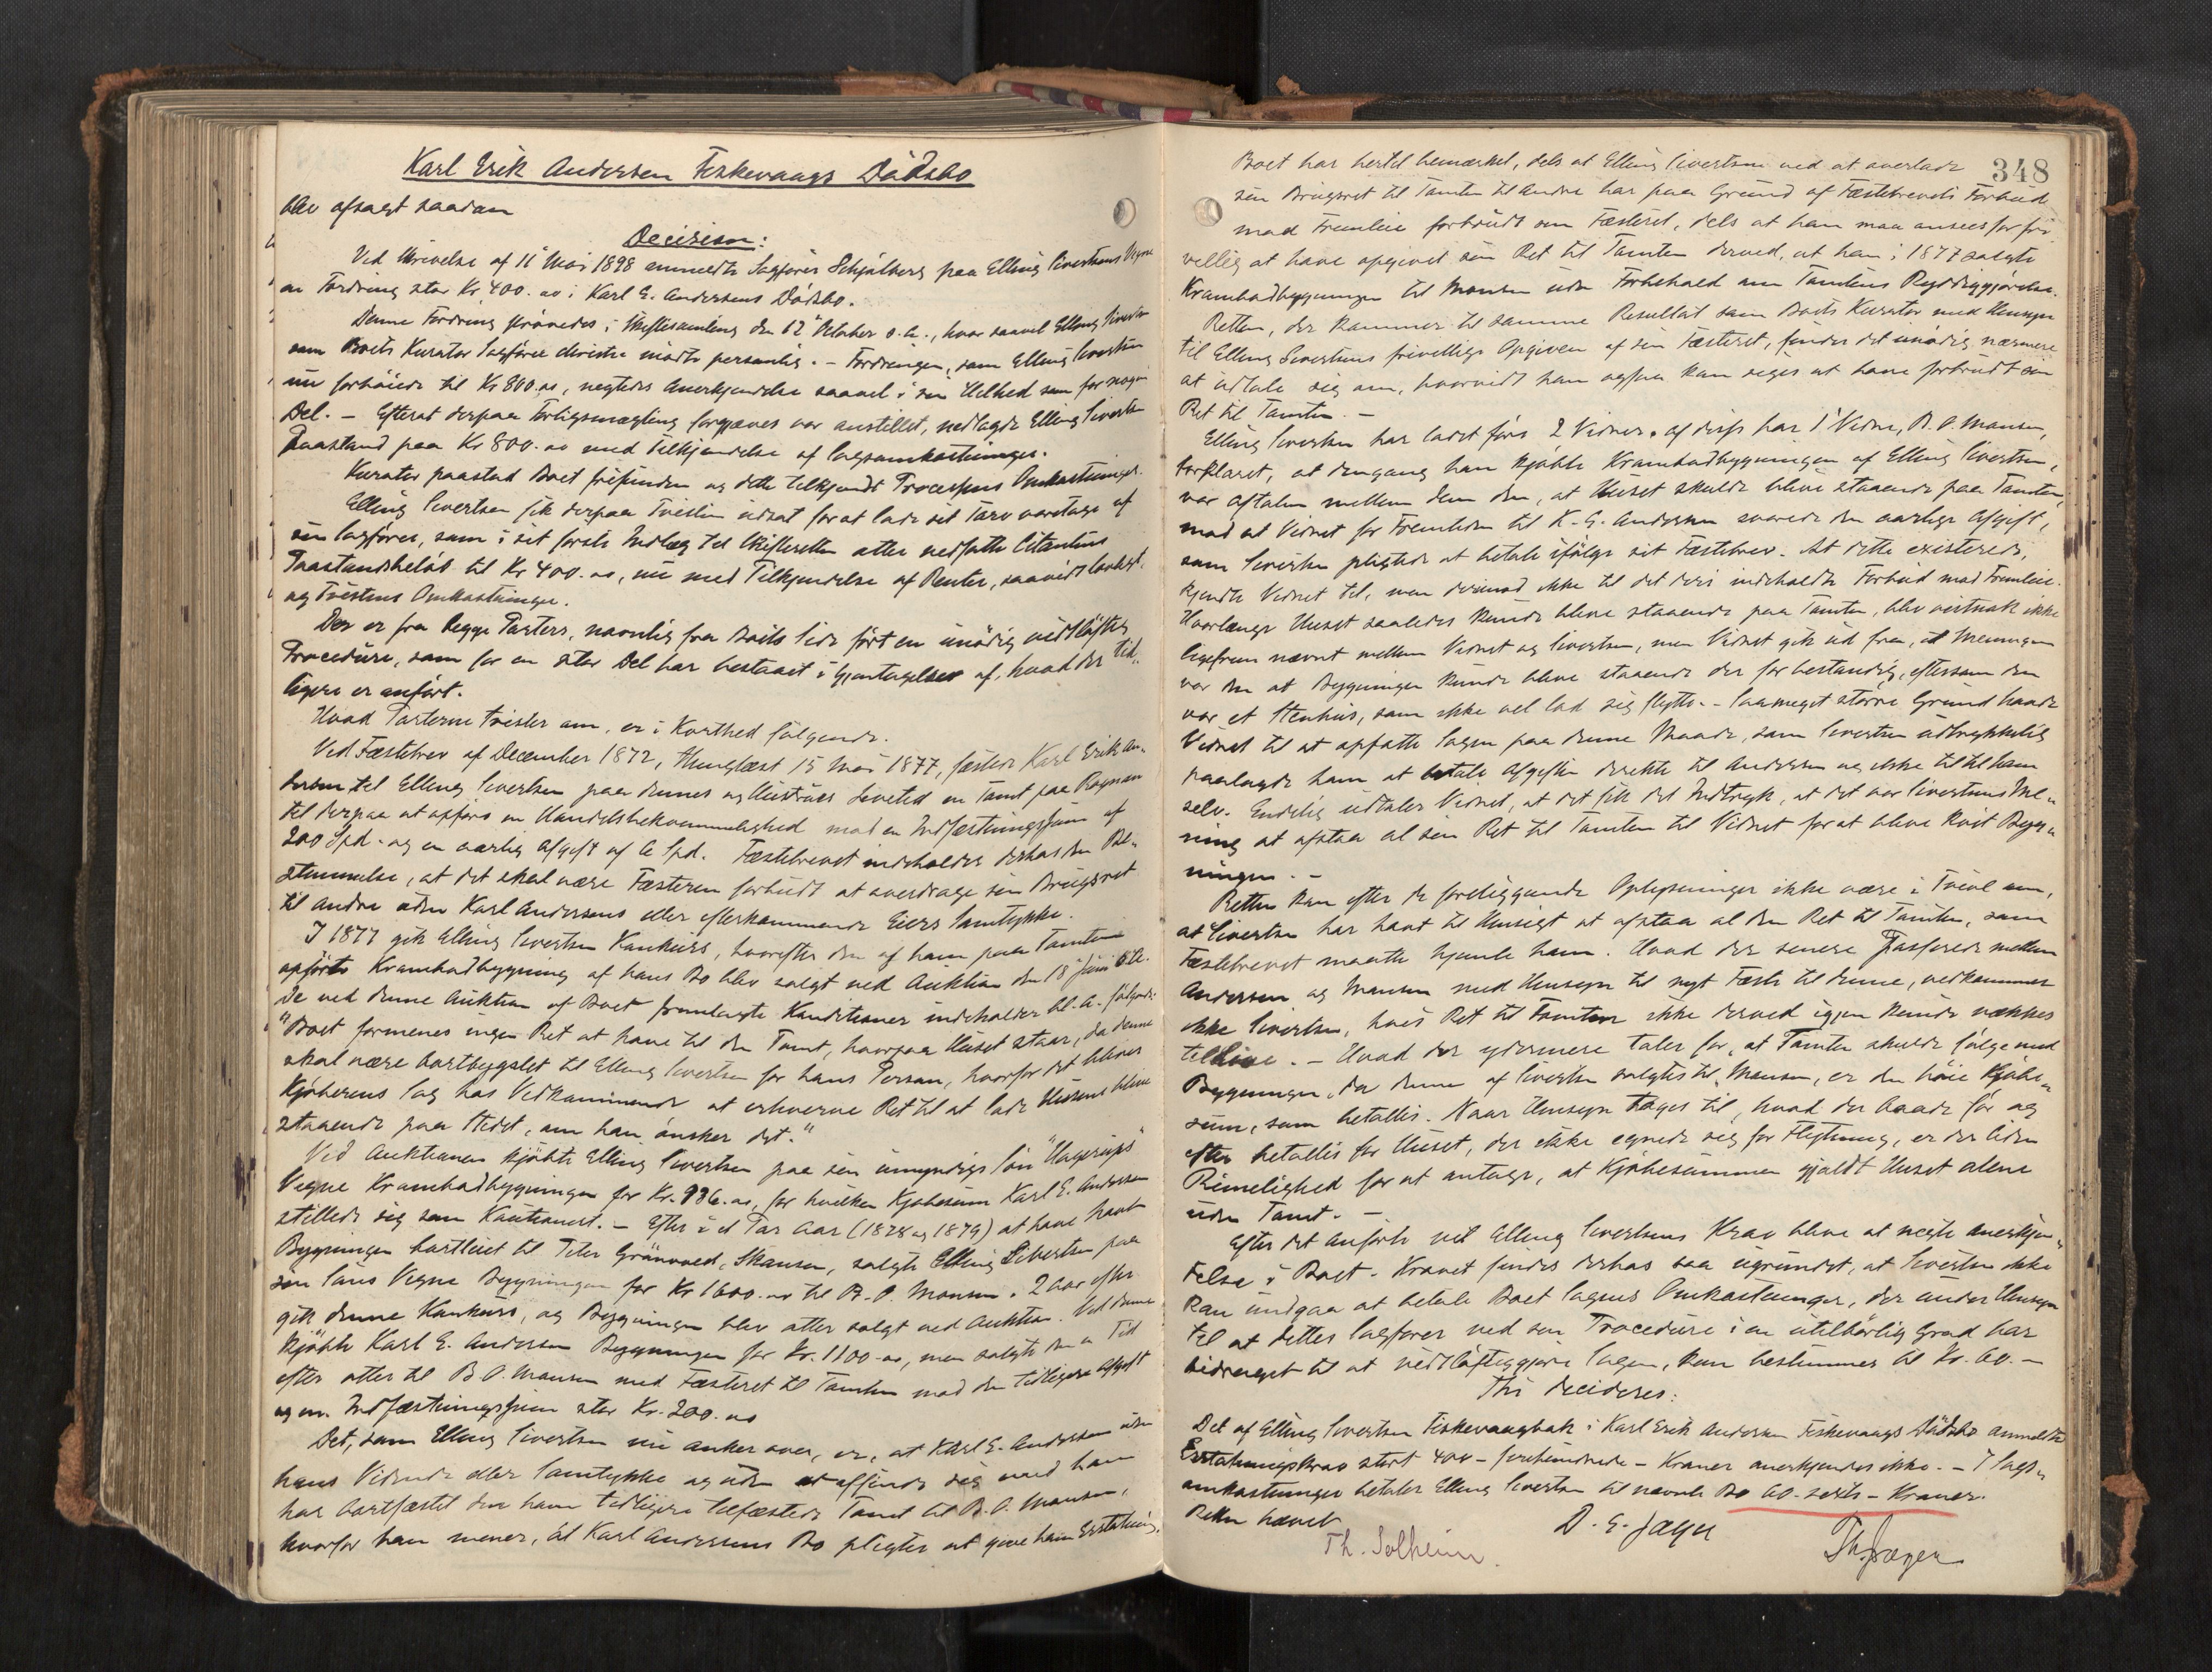 Karl Erik Andersen Fiskevaags Dödsbo
blev afsagt saadan
Decision:
Ved Skrivelse af 11 Mai 1898 anmeldte Sagförer Schjölberg paa Elling Sivertsens Vegne
en Fordring stor Kr. 400.00 i Karl E. Andersens Dödsbo.
Denne Fordring prövedes i Skiftesamling den 12 Oktober s. A., hvor saavel Elling Sivertsen
som Boets Kurator Sagförer mödte personlig. - Fordringen, som Elling Sivertsen
nu forhöiede til Kr 800.00, negtedes Anerkjendelse saavel i sin Helhed som for nogen
Del. - Efterat derpaa Forligsmægling forgjæves var anstillet, nedlagde Elling Sivertsen
Paastand paa Kr 800.00 med Tilkjendelse af Sagsomkostninger.
Kurator paastod Boet frifunden og dette tilkjendt Processens Omkostninger.
Elling Sivertsen fik derpaa Tvisten udsat for at lade sit Tarv varetage af
sin Sagförer, som i sit förste Indlæg til Skifteretten atter nedsatte Citantens
Paastandsbelöb til Kr 400.00, nu med Tilkjendelse af Renter, saavidt lovligt,
og Tvistens Omkostninger.
Der er fra begge Parters, navnlig fra Boets Side fört en unödig vidtlöftig
Procedure, som for en stor Del har bestaaet i Gjentagelser af, hvad der tid-
ligere er anfört.
Hvad Parterne tvister om, er i Korthed fölgende.
Ved Fæstebrev af December 1872, thinglæst 15 Mai 1877, fæstede Karl Erik An-
dersen til Elling Sivertsen paa dennes og Hustrues Levetid en Tomt paa Rognan
til derpaa at opföre en Handelsbekvemmelighed mod en Indfæstningssum af
200 Spd. og en aarlig Afgift af 2 Spd. Fæstebrevet indeholder derhos den Be-
stemmelse, at det skal være Fæsteren forbudt at overdrage sin Brugsret
til andre uden Karl Andersens eller efterkommende Eiers Samtykke.
I 1877 gik Elling Sivertsen Konkurs, hvorefter den af ham paa Tomten
opförte Krambodbygning af hans Bo blev solgt ved Auktion den 18 Juni s. A.
De ved denne Auktion af Boet fremlagte Konditioner indeholder bl. A. fölgende:
"Boet formenes ingen Ret at have til den Tomt, hvorpaa Huset staar, da denne
skal være bortbygslet til Elling Sivertsen for hans Person, hvorfor det bliver
Kjöberens Sag hos Vedkommende at erhverve Ret til at lade Husene blive
staaende paa Stedet, om han önsker det."
Ved Auktionen kjöbte Elling Sivertsen paa sin umyndige Sön "Hagerups"
Vegne Krambodbygningen for Kr. 986.00, for hvilken Kjöbesum Karl E. Andersen
stillede sig som Kautionist. - Efter i et Par Aar (1878 og 1879) at have havt
Bygningen bortleiet til Peter Skansen, solgte Elling Sivertsen paa
sin Söns Vegne Bygningen for Kr 1600.00 til B. O. Monsen. 2 Aar efter
gik denne Konkurs, og Bygningen blev atter solgt ved Auktion. Ved denne
kjöbte Karl E. Andersen Bygningen for Kr. 1100.00, men solgte den en Tid
efter atter til B. O. Monsen med Fæsteret til Tomten mod den tidligere Afgift
og en Indfæstningssum stor Kr. 200.00
Det, som Elling Sivertsen nu anker over, er, at Karl E. Andersen uden
hans Vidende eller Samtykke og uden at affinde sig med ham
har bortfæstet den ham tidligere tilfæstede Tomt til B. O. Monsen,
hvorfor han mener, at Karl Andersens Bo pligter at give ham Erstatning.
348
Boet har hertil bemærket, dels at Elling Sivertsen ved at overlade
sin Brugsret til Tomten til andre har paa Grund af Fæstebrevets Forbud
mod Fremleie forbrudt sin Fæsteret, dels at han maa ansees for fri-
villig at have opgivet sin Ret til Tomten derved, at han i 1877 solgte
Krambodbygningen til Monsen uden Forbehold om Tomtens Ryddiggjörelse.
Retten, der kommer til samme Resultat som Boets Kurator med Hensyn
til Elling Sivertsens frivillige Opgiven af sin Fæsteret, finder det unödig nærmere
at udtale sig om, hvorvidt han ogsaa kan siges at have forbrudt sin
Ret til Tomten. -
Elling Sivertsen har ladet före 2 Vidner. Af disse har 1' Vidne, B. O. Monsen,
forklaret, at dengang han kjöbte Krambodbygningen af Elling Sivertsen,
var Aftalen mellem dem den, at Huset skulde blive staaende paa Tomten,
mod at Vidnet for Fremtiden til K. E. Andersen svarede den aarlige Afgift,
som Sivertsen pligtede at betale ifölge sit Fæstebrev. At dette existerede,
kjendte Vidnet til, men derimod ikke til det deri indeholdte Forbud mod Fremleie.
Hvorlænge Huset saaledes kunde blive staaende paa Tomten, blev vistnok ikke
ligefrem nævnt mellem Vidnet og Sivertsen, men Vidnet gik ud fra, at Meningen
var den at Bygningen kunde blive staaende der for bestandig, eftersom den
var et Stenhus, som ikke vel lod sig flytte. - Saameget större Grund havde
Vidnet til at opfatte Sagen paa denne Maade, som Sivertsen udtrykkelig
paalagde ham at betale Afgiften direkte til Andersen og ikke til til ham
selv. Endelig udtaler Vidnet, at det fik det Indtryk, at det var Sivertsens Me-
ning at afstaa al sin Ret til Tomten til Vidnet for at blive kvit Byg-
ningen. -
Retten kan efter de foreliggende Oplysninger ikke være i Tvivl om,
at Sivertsen har havt til Hensigt at afstaa al den Ret til Tomten, som
Fæstebrevet maatte hjemle ham. Hvad der senere passerede mellem
Andersen og Monsen med Hensyn til nyt Fæste til denne, vedkommer
ikke Sivertsen, hvis Ret til Tomten ikke derved igjen kunde vækkes
tillive. - Hvad der ydermere taler for, at Tomten skulde fölge med
Bygningen, da denne af Sivertsen solgtes til Monsen, er den höie Kjöbe-
sum, som betaltes. Naar Hensyn tages til, hvad der baade för og
efter betaltes for Huset, der ikke egnede sig for Flytning, er der liden
Rimelighed for at antage, at Kjöbesummen gjaldt Huset alene
uden Tomt. -
Efter det anförte vil Elling Sivertsens Krav blive at negte Anerkjen-
delse i Boet. Kravet findes derhos saa ugrundet, at Sivertsen ikke
kan undgaa at betale Boet Sagens Omkostninger, der under Hensyn
til at dettes Sagförer ved sin Procedure i en utilbörlig Grad har
bidraget til at vidtlöftiggjöre Sagen, kun bestemmes til Kr. 60. -
Thi decideres:
Det af Elling Sivertsen Fiskevaagbak i Karl Erik Andersen Fiskevaags Dödsbo anmeldte
Erstatningskrav stort 400 - firehundrede - Kroner anerkjendes ikke. - I Sags-
omkostninger betaler Elling Sivertsen til nævnte Bo 60 - sexti - Kroner.
Retten hævet
Th. Solheim.